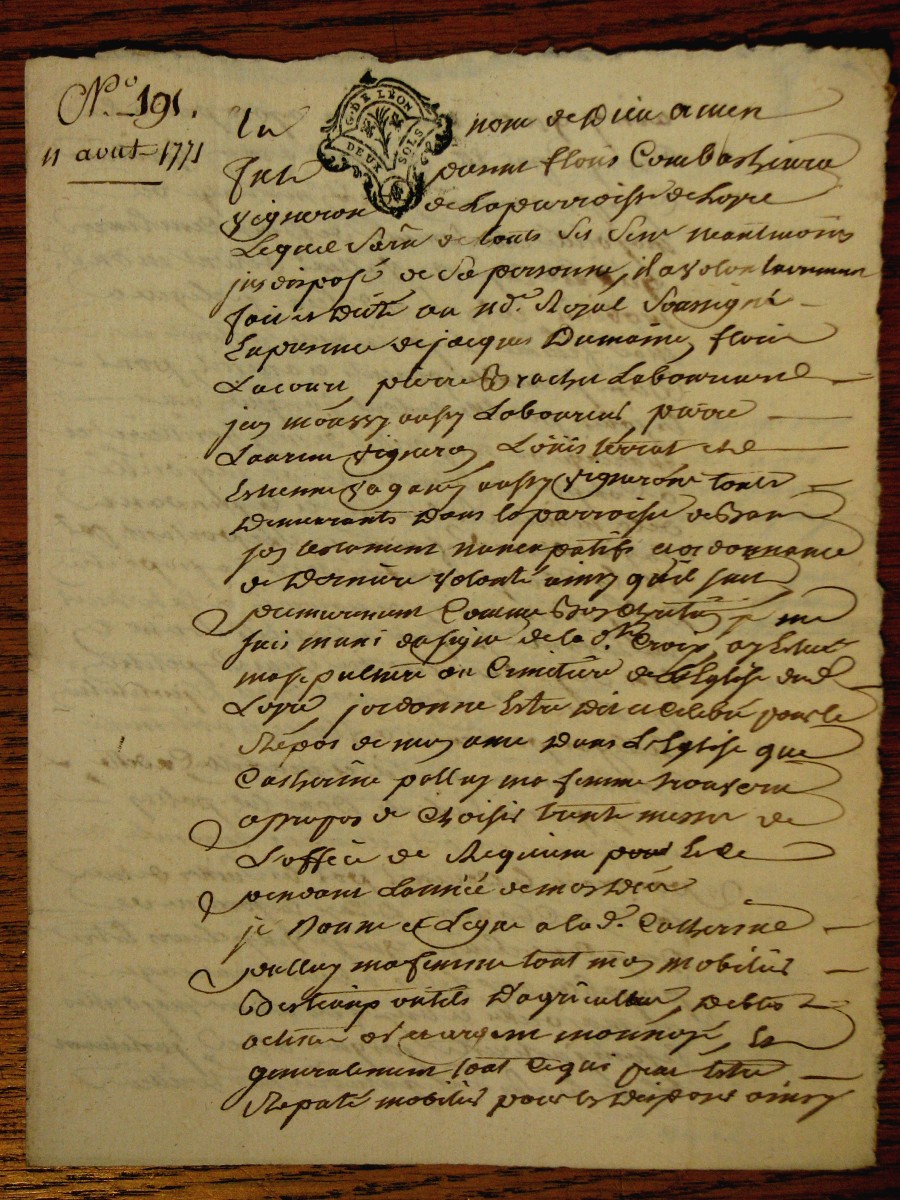 N.o 191.
11 aout 1771
G. DE LYON
DEUX SOLS
Au nom de Dieu amen
fut donne flous Combat
Vigneron de la parroisse de Loyre
Lequel sain de touts ses sens neantmoins
indisposé de sa personne, il a volontairement
fait et dicté au n.re Royal soussigné
En presence de jacques Dumaine, flouis
Lacour, pierre Brachet Laboureurs
jean moussy aussy Laboureur, pierre
Laurent Vigneron, Loüis terrat et
Estienne aussy Vignerons touts
Demeurants Dans la parroisse de
son testament nuncupatif et ordonnance
de Derniere Volonté ainsy qu'il suit
premierement Comme bon Chretien je me
suis muni du signe de la S.te Croix, ay Esleut
ma sepulture au Cimitiere de L'Eglise dud.
Loyre j'ordonne Estre Dit et Celebré pour le
Repos de mon ame Dans L'Eglise que
Catherine pallay ma femme trouvera
apropos de Choisir trente messes de
L'office de Requiem pour Elle
pendant L'année de mon Décé
je Donne et Legue a la d. Catherine
pallay ma femme tout mon mobilier
Bestiaux outils D'agriculture, Debtes
actives or et argent monnoyé, Et
generalement tout Ce qui sera Estre
Reputé mobilier pour En Disposer ainsy